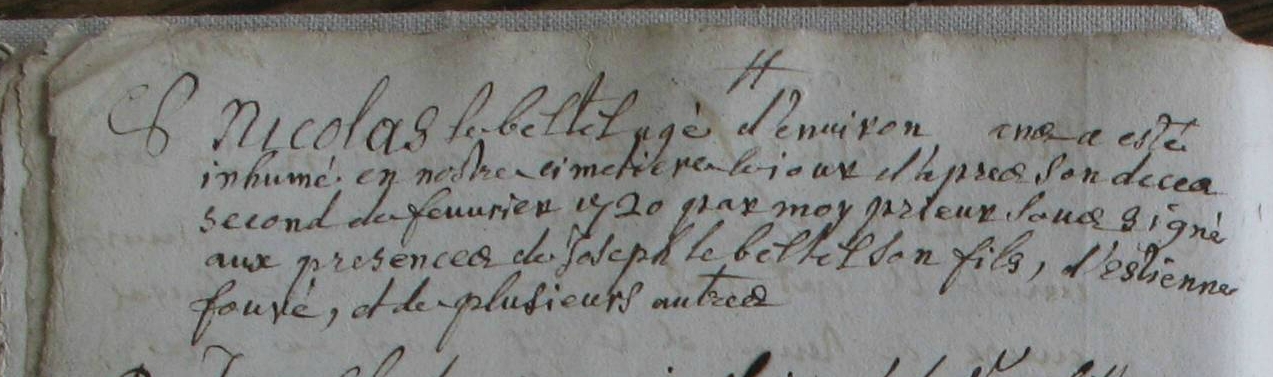 S Nicolas le beltel agé d'enuiron ans a esté
inhumé en nostre cimetiere le jour d'apres son deces
second de feuurier 1720 par moy prieur sous signé
aux presences de Joseph le beltel son fils, d'estienne
fouré, et de plusieurs autres